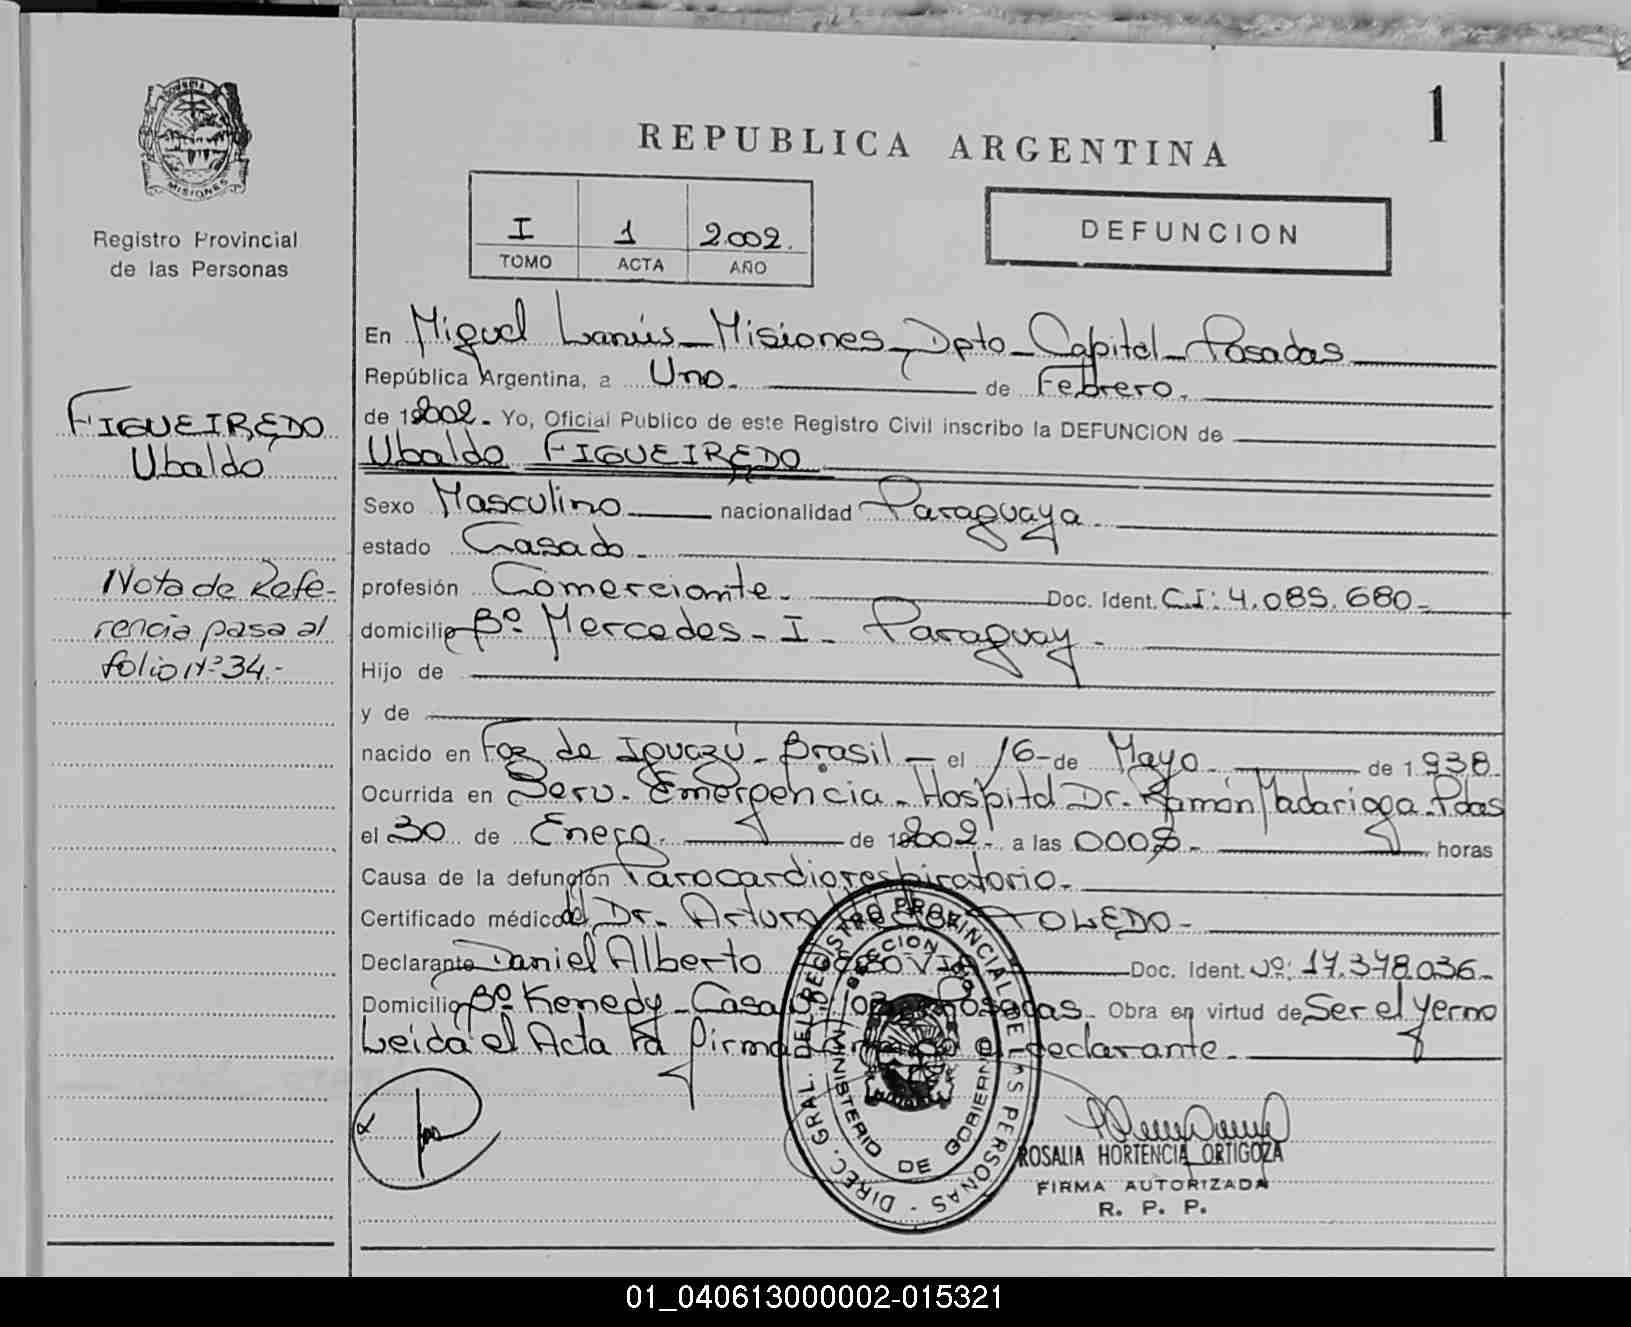 1
REPUBLICA ARGENTINA
MISIONES
Registro Provincial
de las Personas
I 1 2.002.
TOMO ACTA AÑO
DEFUNCION
FIGUEIREDO
Ubaldo
Nota de Refe-
rencia pasa al
folio Nº 34.-
En Miguel Lanús - Misiones - Dpto - Capital - Posadas
República Argentina, a Uno. de Febrero.
de 2002. Yo, Oficial Publico de este Registro Civil inscribo la DEFUNCION de
Ubaldo FIGUEIREDO
Sexo Masculino nacionalidad Paraguaya
estado Casado.
profesión Comerciante. Doc. Ident. C.I: 4.085.680-
domicilio Bº Mercedes - I - Paraguay -
Hijo de
y de
nacido en Foz de Iguazú - Brasil - el 16 - de Mayo de 1.938.
Ocurrida en Serv. Emergencia - Hospital Dr. Ramón Madariaga - Pdas
el 30 de Enero. de 2002. a las horas
Causa de la defunción Parocardiorespiratorio.
Certificado médico del Dr. Arturo TOLEDO -
Declarante Daniel Alberto Doc. Ident. Nº: 17.378.036-
Domicilio Bº Kenedy - Casa Posadas - Obra en virtud de Ser el yerno
Leida el Acta la firma declarante.
DIREC. GRAL. DEL REGISTRO PROVINCIAL DE LAS PERSONAS
MINISTERIO DE GOBIERNO
ROSALIA HORTENCIA ORTIGOZA
FIRMA AUTORIZADA
R. P. P.
01_040613000002-015321